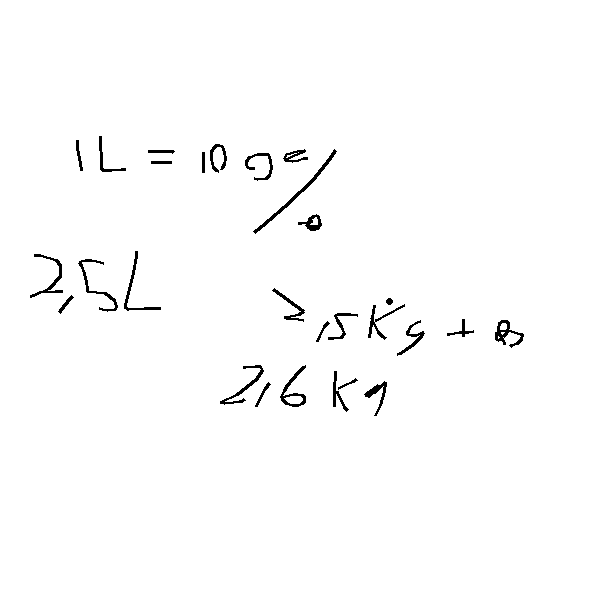 1L = 10 ge/
2,5L
2,5 Kg +
2,6 Kg